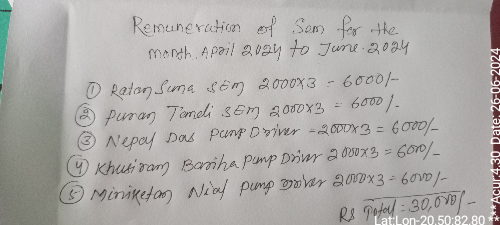 Remuneration of Sem for the
month. April 2024 to June-2024
① Ratan Suna SEM 2000x3 - 6000/-
② Puran Tandi SEM 2000x3 = 6000/-
③ Nepal Das Pump Driver -2000x3 = 6000/-
④ Khusiram Bariha Pump Driver 2000x3 = 6000/-
⑤ Miniketan Nial Pump Driver 2000x3 = 6000/-
Rs Total = 30,000/-
Lat:Lon-20.50:82.80
Date:26-06-2024